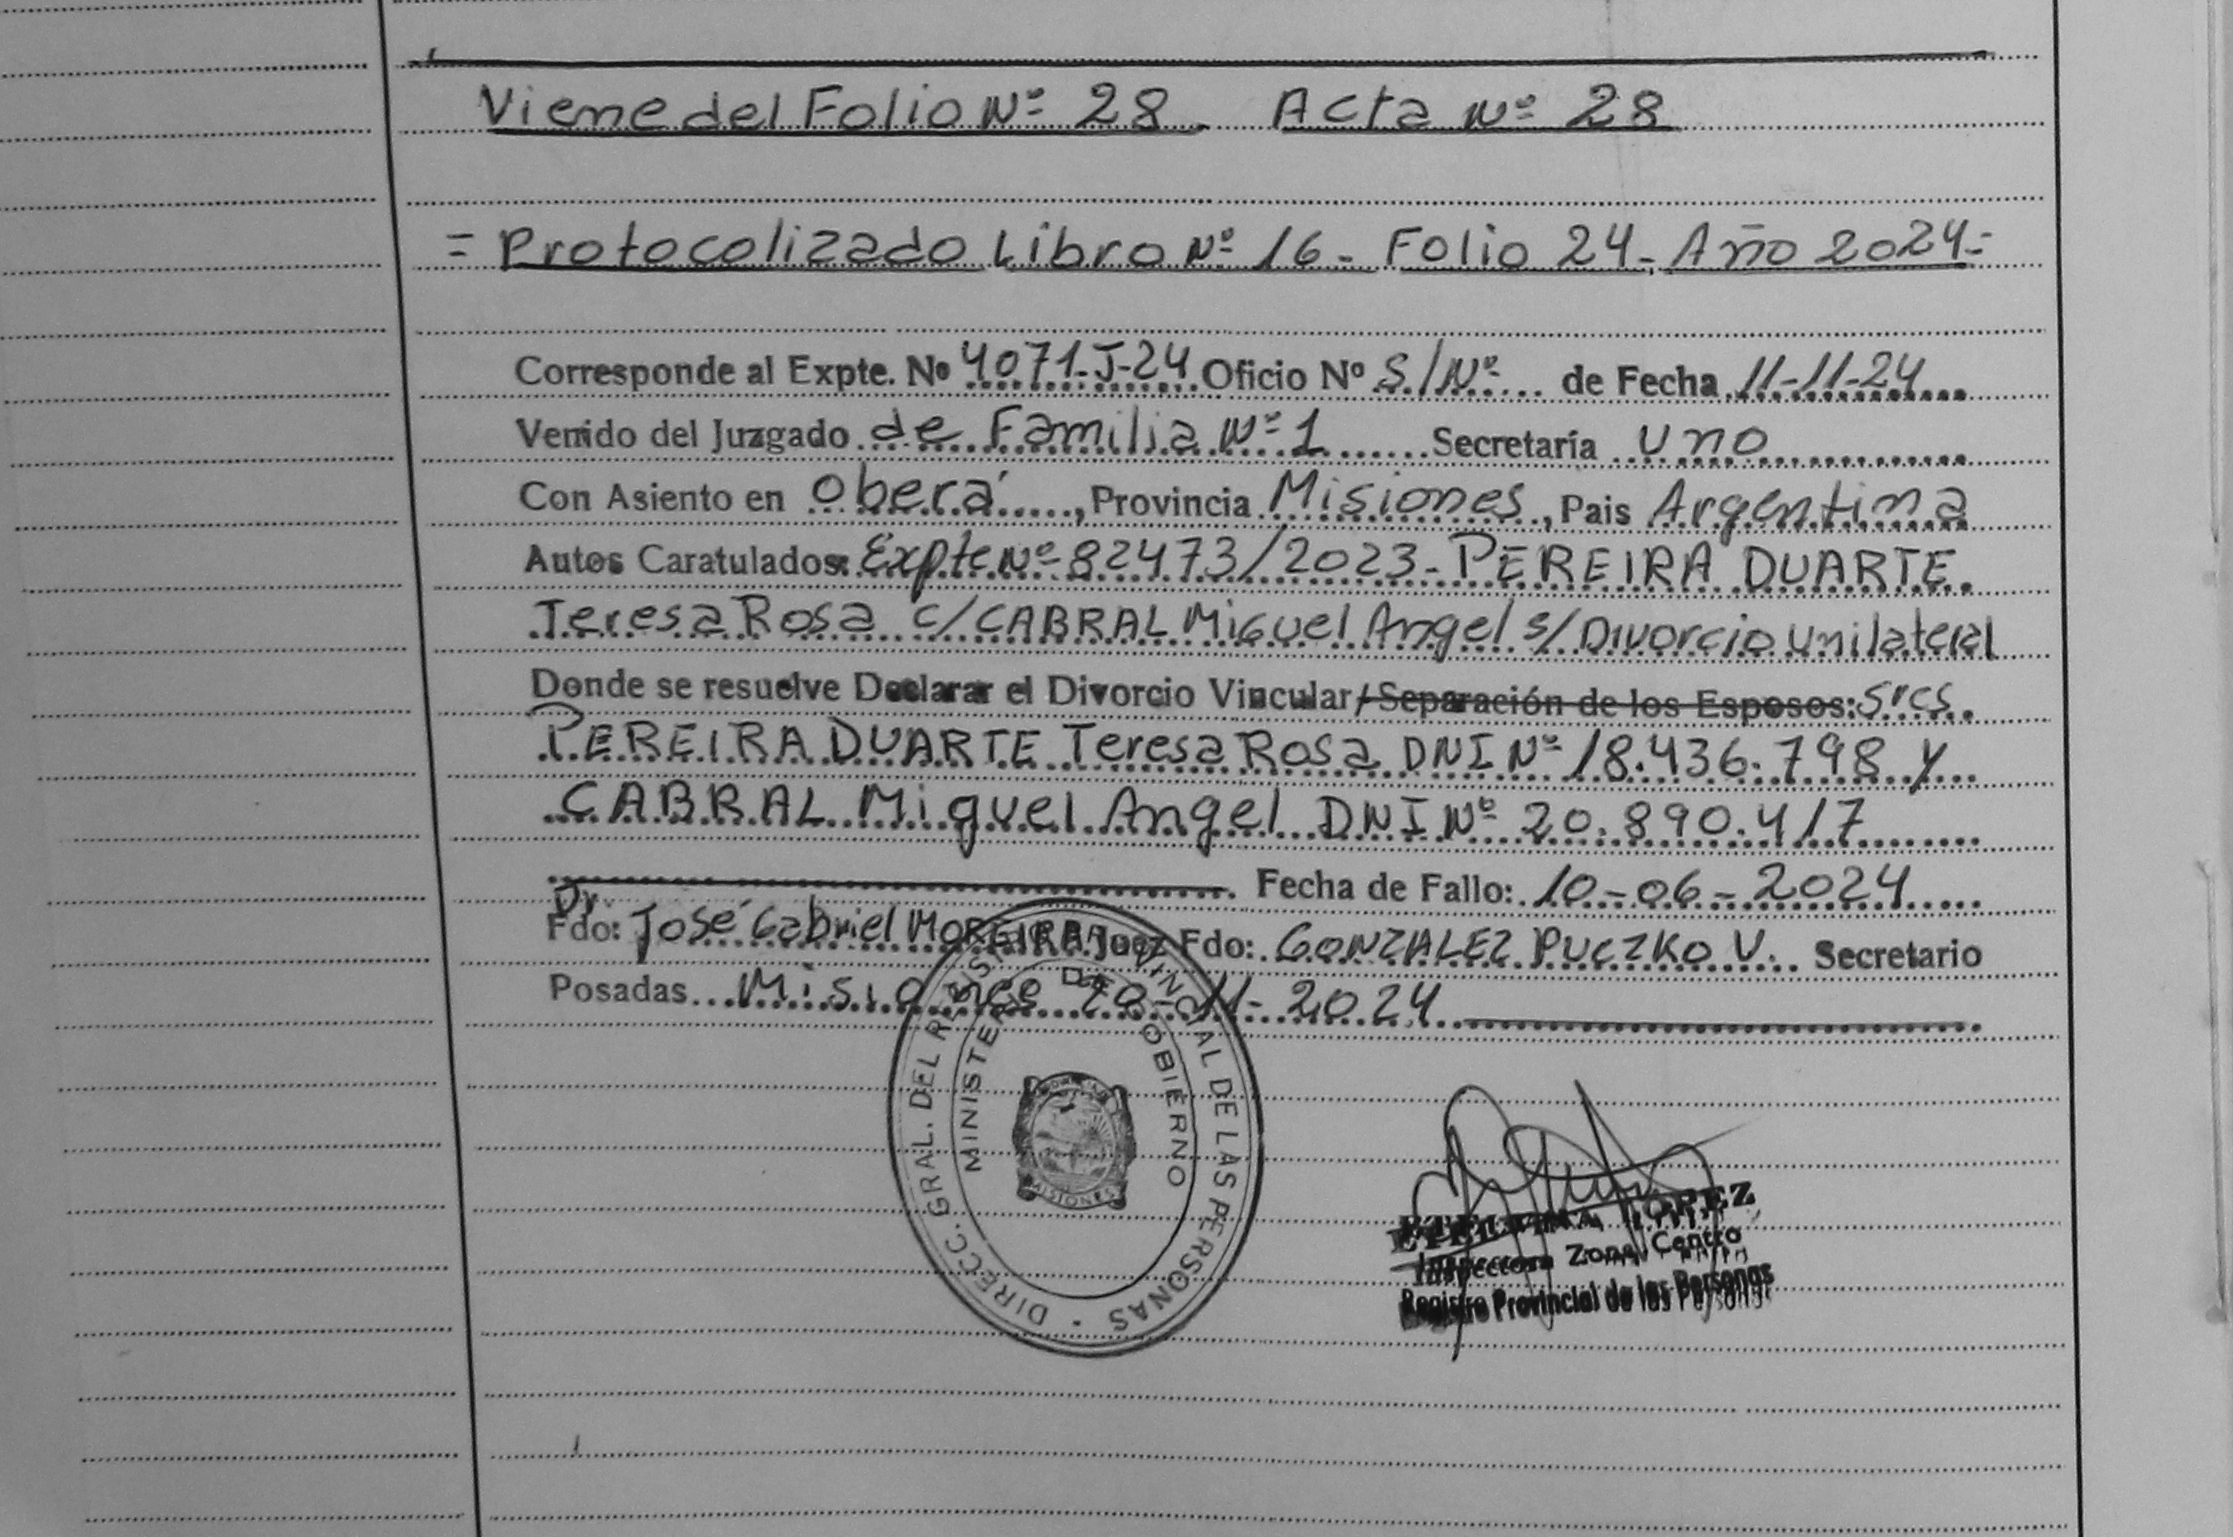 Viene del Folio Nº 28. Acta Nº 28
= Protocolizado Libro Nº 16 - Folio 24 - Año 2024 =
Corresponde al Expte. Nº 4071-J-24 Oficio Nº S/Nº de Fecha 11-11-24
Venido del Juzgado de Familia Nº 1 Secretaría uno
Con Asiento en Oberá, Provincia Misiones, Pais Argentina
Autos Caratulados: Expte Nº 82473/2023 - PEREIRA DUARTE
Teresa Rosa c/ CABRAL Miguel Angel s/ Divorcio unilateral
Donde se resuelve Declarar el Divorcio Vincular / Separación de los Esposos: Sres.
PEREIRA DUARTE Teresa Rosa DNI Nº 18.436.798 y
CABRAL Miguel Angel DNI Nº 20.890.417
Fecha de Fallo: 10-06-2024
Dr.
Fdo: José Gabriel MOREIRA Juez Fdo: GONZALEZ PUCZKO V. Secretario
Posadas Misiones -11-2024
DIRECC. GRAL. DEL REGISTRO PROVINCIAL DE LAS PERSONAS -
MINISTERIO DE GOBIERNO
MISIONES
LOPEZ
Inspectora Zona Centro
Registro Provincial de las Personas